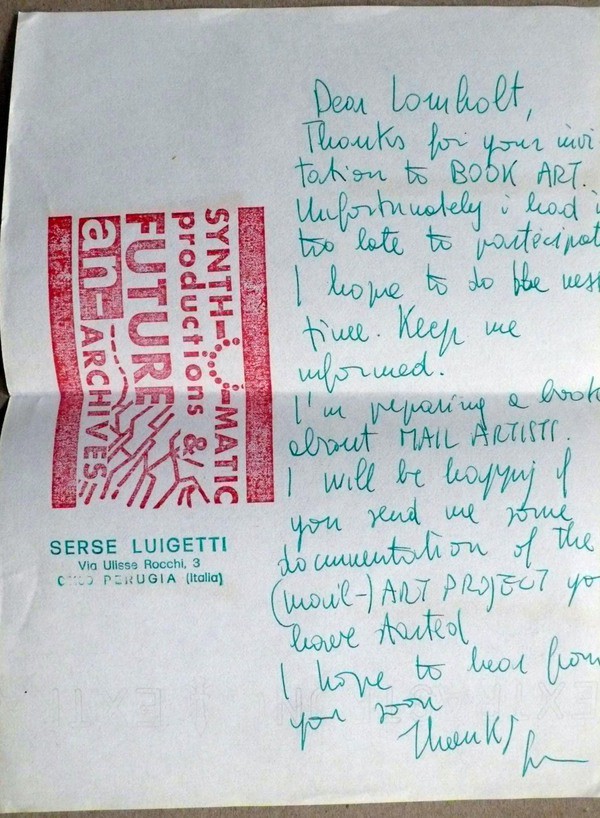 Dear Lomholt,
Thanks for your invi
tation to BOOK ART.
Unfortunately i had i
too late to partecipat
I hope to do the nex
time. Keep me
informed.
I'm preparing a book
about MAIL ARTISTS.
I will be happy if
you send me some
documentation of the
(mail-) ART PROJECT yo
have started
I hope to hear from
you soon
Thanks
SYNTH-O-MATIC
productions &
FUTURE
an-ARCHIVES
SERSE LUIGETTI
Via Ulisse Rocchi, 3
PERUGIA (Italia)